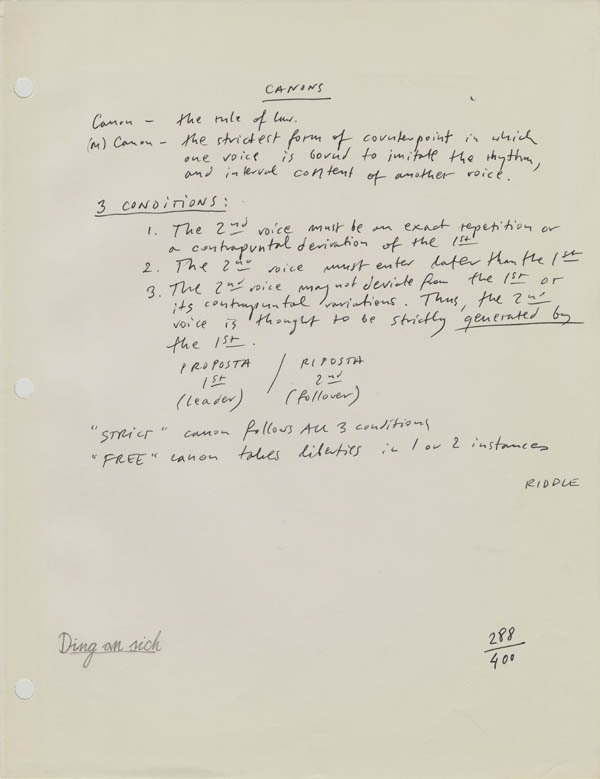 CANONS
Canon – the rule of law.
(M) Canon – the strictest form of counterpoint in which
one voice is bound to imitate the rhythm,
and interval content of another voice.
3 CONDITIONS:
1. The 2nd voice must be an exact repetition or
a contrapuntal derivation of the 1st.
2. The 2nd voice must enter later than the 1st
3. The 2nd voice may not deviate from the 1st or
its contrapuntal variations. Thus, the 2nd
voice is thought to be strictly generated by
the 1st.
PROPOSTA / RIPOSTA
1st 2nd
(leader) (follower)
"STRICT" canon follows ALL 3 conditions
"FREE" canon takes liberties in 1 or 2 instances
RIDDLE
Ding an sich
288
400